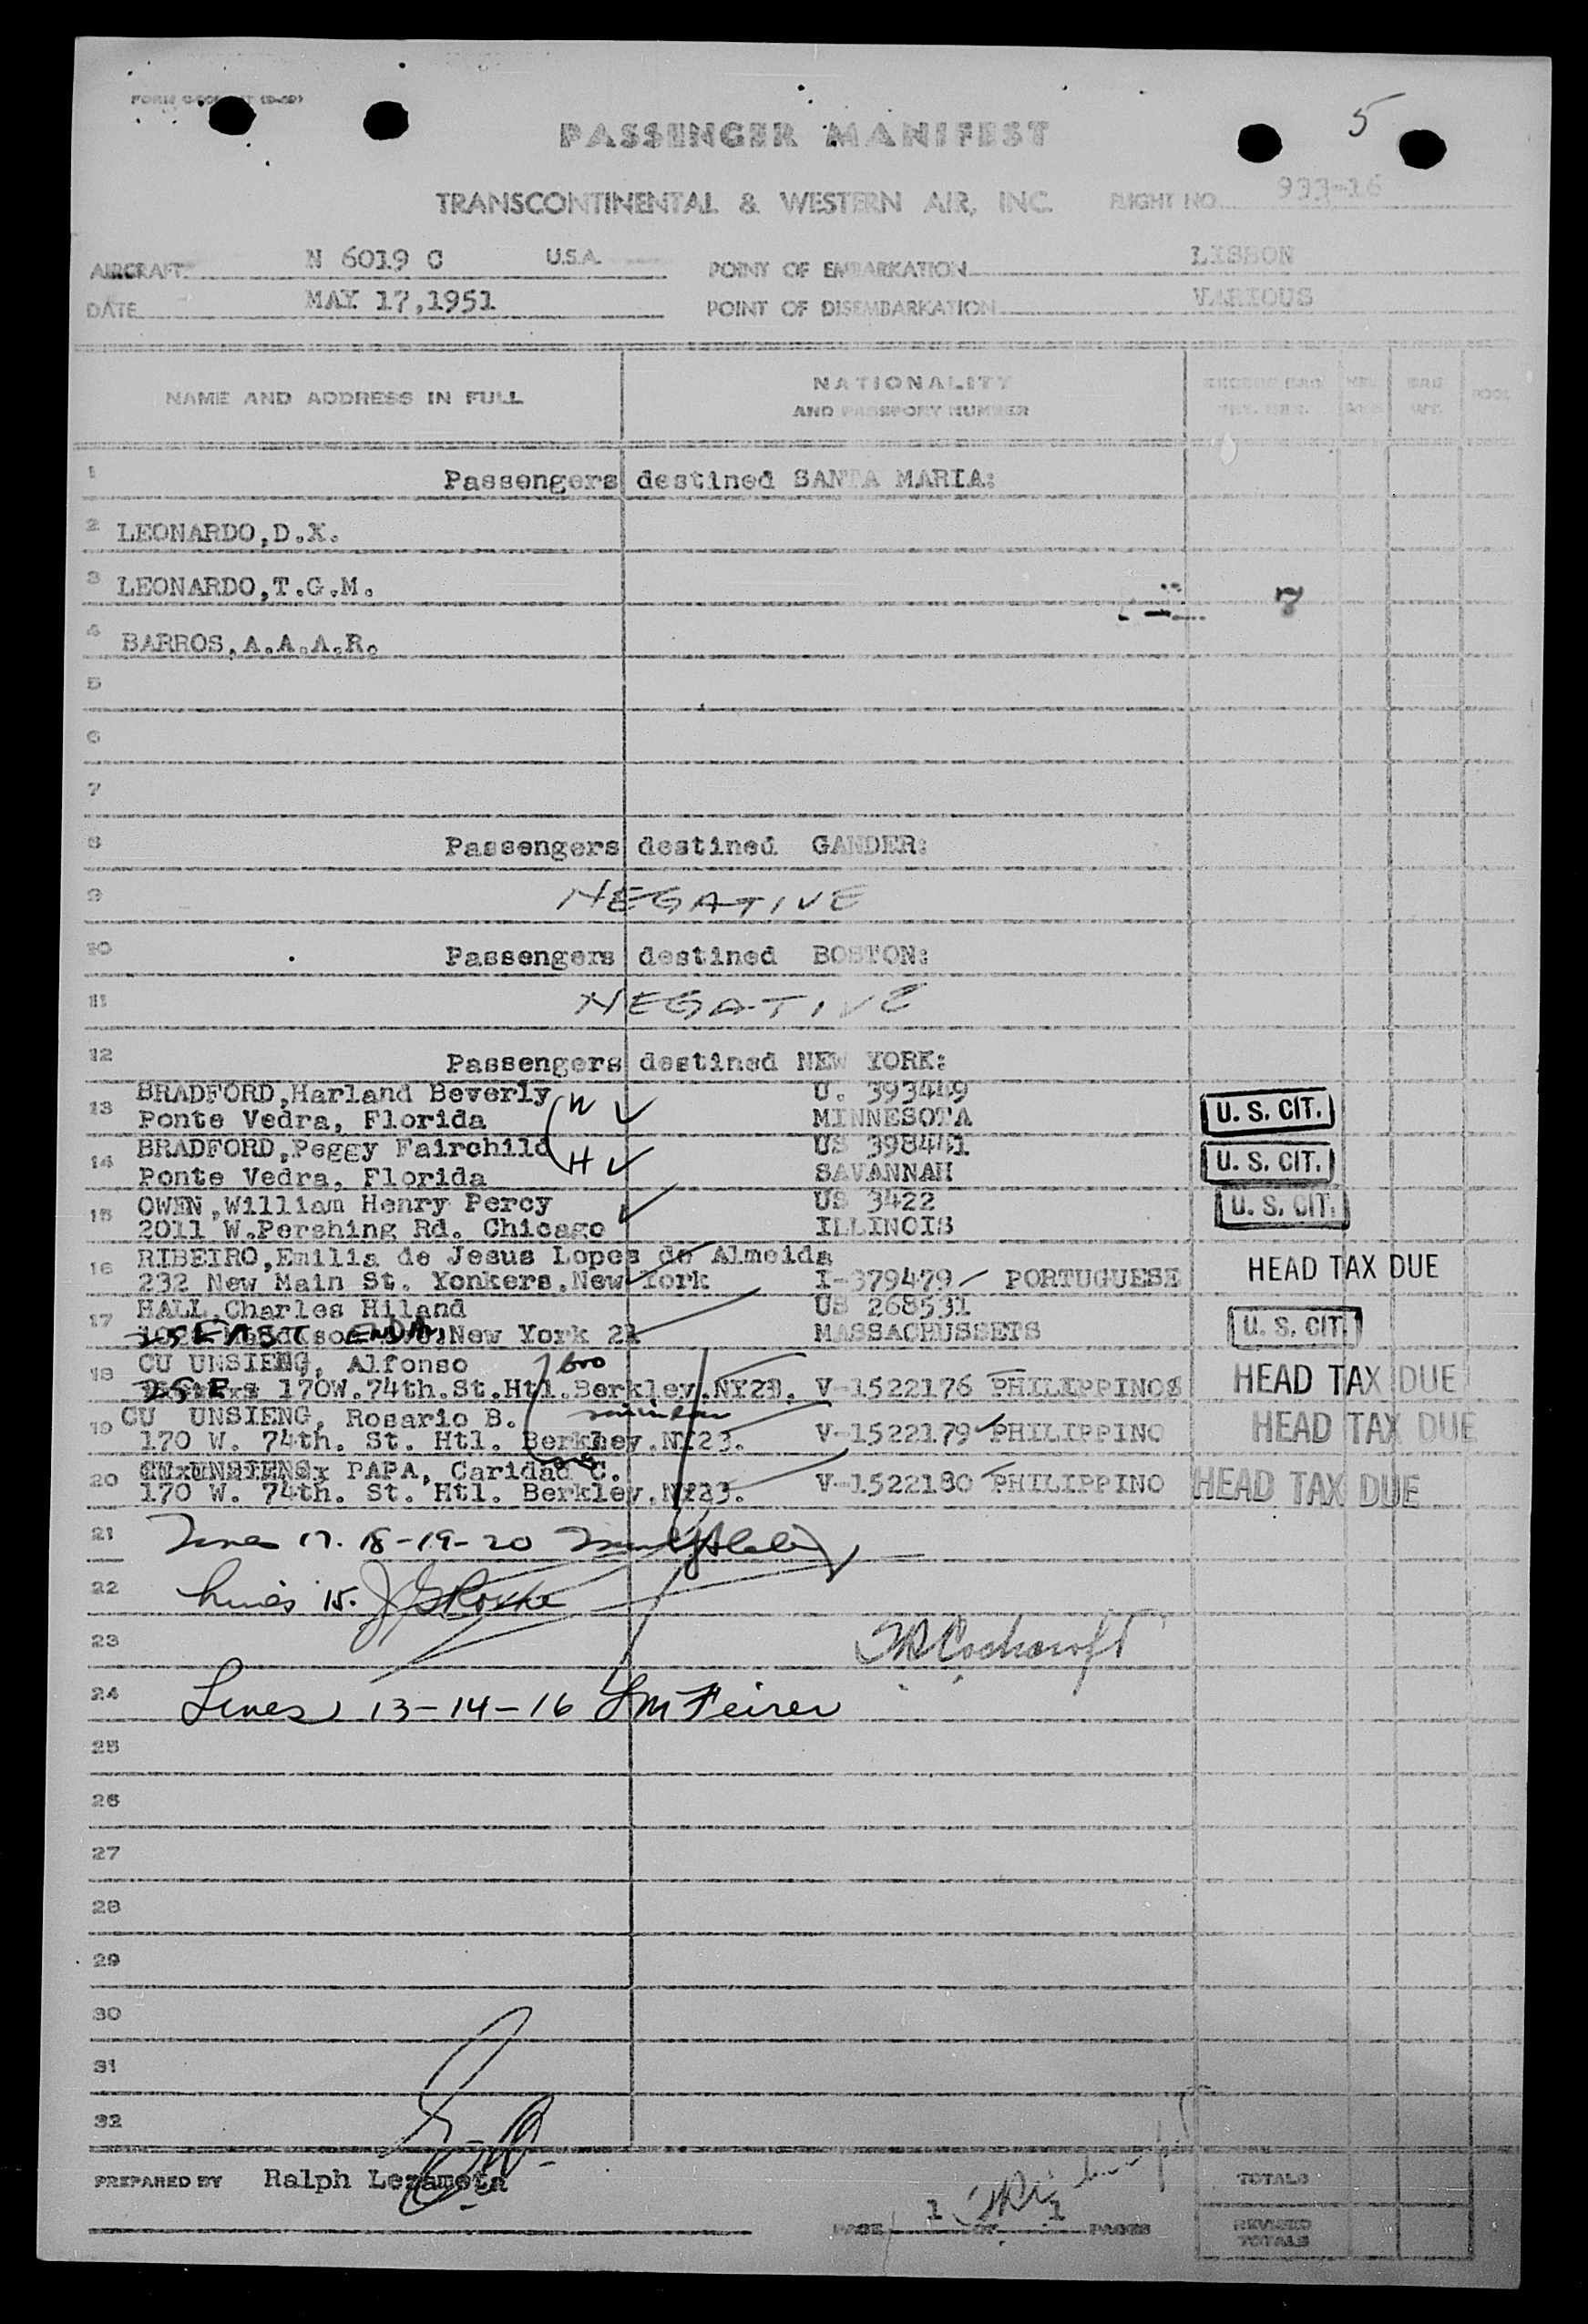 5
PASSENGER MANIFEST
TRANSCONTINENTAL & WESTERN AIR, INC. FLIGHT NO. 933-16
AIRCRAFT N 6019 C U.S.A. POINT OF EMBARKATION LISBON
DATE MAY 17,1951 POINT OF DISEMBARKATION VARIOUS
NAME AND ADDRESS IN FULL NATIONALITY AND PASSPORT NUMBER
1 Passengers destined SANTA MARIA:
2 LEONARDO,D.X.
3 LEONARDO,T.G.M. 7
4 BARROS,A.A.A.R.
5
6
7
8 Passengers destined GANDER:
9 NEGATIVE
10 Passengers destined BOSTON:
11 NEGATIVE
12 Passengers destined NEW YORK:
13 BRADFORD,Harland Beverly W U. 393449
Ponte Vedra, Florida MINNESOTA U. S. CIT.
14 BRADFORD,Peggy Fairchild H US 398441
Ponte Vedra, Florida SAVANNAH U. S. CIT.
15 OWEN,William Henry Percy US 3422
2011 W.Pershing Rd. Chicago ILLINOIS U. S. CIT.
16 RIBEIRO,Emilia de Jesus Lopes de Almeida
232 New Main St. Yonkers.New York I-379479 PORTUGUESE HEAD TAX DUE
17 HALL,Charles Hiland US 268531
New York 21 MASSACHUSSETS U. S. CIT.
18 CU UNSIENG, Alfonso bro
170W.74th.St.Htl.Berkley.NY23. V-1522176 PHILIPPINOS HEAD TAX DUE
19 CU UNSIENG, Rosario B.
170 W. 74th. St. Htl. Berkley.NY23. V-1522179 PHILIPPINO HEAD TAX DUE
20 PAPA, Caridad C.
170 W. 74th. St. Htl. Berkley.NY23. V-1522180 PHILIPPINO HEAD TAX DUE
21 17. 18-19-20
22 15.
23
24 Lines 13-14-16
25
26
27
28
29
30
31
32
PREPARED BY Ralph Lezameta
PAGE 1 OF 1 PAGES
TOTALS
REVISED TOTALS